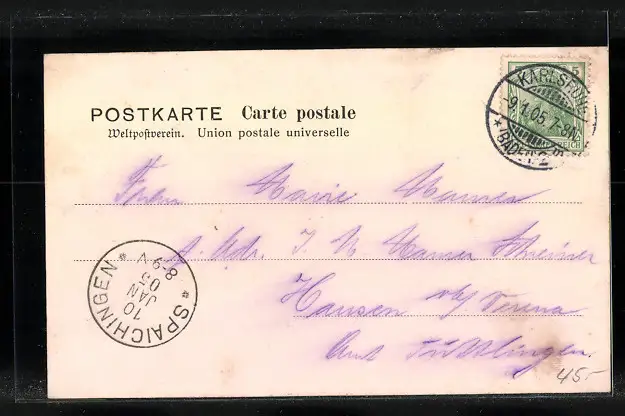 POSTKARTE Carte postale
Weltpostverein. Union postale universelle
5
KARLSRUHE
-9.1.05. 7-8N.
* (BADEN) 2
Marie
A. Adr. J. M
Hausen ob/ Verena
Amt Tuttlingen.
SPAICHINGEN
10
JAN
05
8-9 V
45-